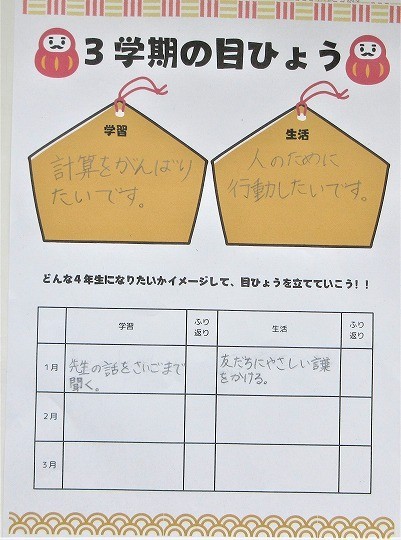 3学期の目ひょう
学習
計算をがんばり
たいです。
生活
人のために
行動したいです。
どんな4年生になりたいかイメージして、目ひょうを立てていこう!!
学習
ふり
返り
生活
ふり
返り
1月
先生の話をさいごまで
聞く。
友だちにやさしい言葉
をかける。
2月
3月